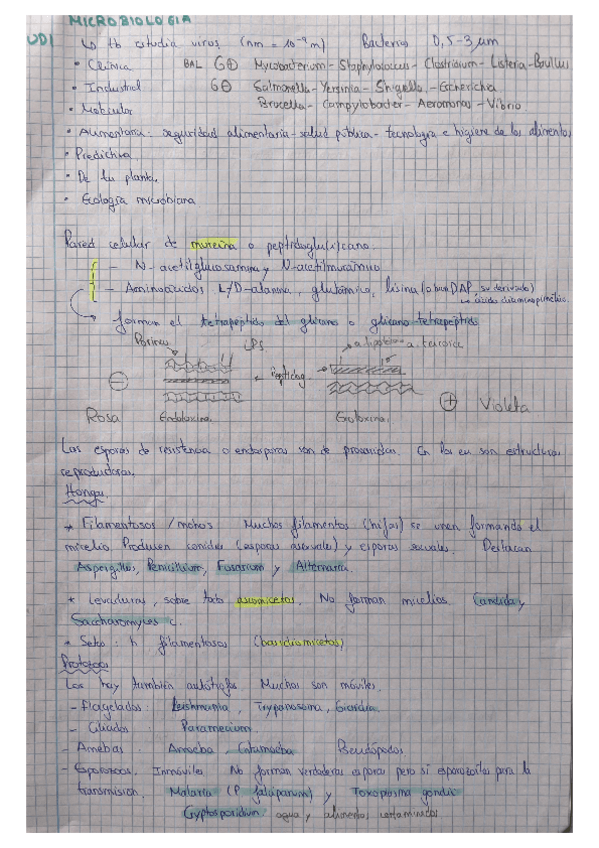 MICROBIOLOGIA
UD1
↳ tb estudia virus (nm = 10⁻⁹ m) Bacterias 0,5-3 µm
• Clínica BAL G⊕ Mycobacterium - Staphylococcus - Clostridium - Listeria - Bacillus
• Industrial G⊖ Salmonella - Yersinia - Shigella - Escherichia
• Molecular Brucella - Campylobacter - Aeromonas - Vibrio
• Alimentaria: seguridad alimentaria - salud pública - tecnología e higiene de los alimentos
• Predictiva
• De la planta
• Ecología microbiana
Pared celular de mureína o peptidoglu(i)cano
- N-acetilglucosamina y N-acetilmurámico
- Aminoácidos L/D-alanina, glutámico, lisina (o bien DAP, su derivado)
↳ ácido diaminopimélico
→ forman el tetrapéptido del glicano o glicano-tetrapéptido
Porinas LPS a. lipoteicoico a. teicoico
⊖ peptidog ⊕ Violeta
Rosa Endotoxina Exotoxina
Las esporas de resistencia o endosporas son de procariotas. En los euc son estructuras
reproductoras.
Hongos
* Filamentosos / mohos Muchos filamentos (hifas) se unen formando el
micelio. Producen conidios (esporas asexuales) y esporas sexuales. Destacan
Aspergillus, Penicillium, Fusarium y Alternaria.
* Levaduras, sobre todo ascomicetos. No forman micelios. Candida y
Saccharomyces c.
* Setas: h filamentosos (basidiomicetos)
Protozoos
Los hay también autótrofos. Muchos son móviles.
- Flagelados: Leishmania, Trypanosoma, Giardia.
- Ciliados: Paramecium.
- Amebas: Amoeba, Entamoeba Pseudópodos
- Esporozoos. Inmóviles No forman verdaderas esporas pero sí esporozoitos para la
transmisión. Malaria (P. falciparum) y Toxoplasma gondii
Cryptosporidium: agua y alimentos contaminados